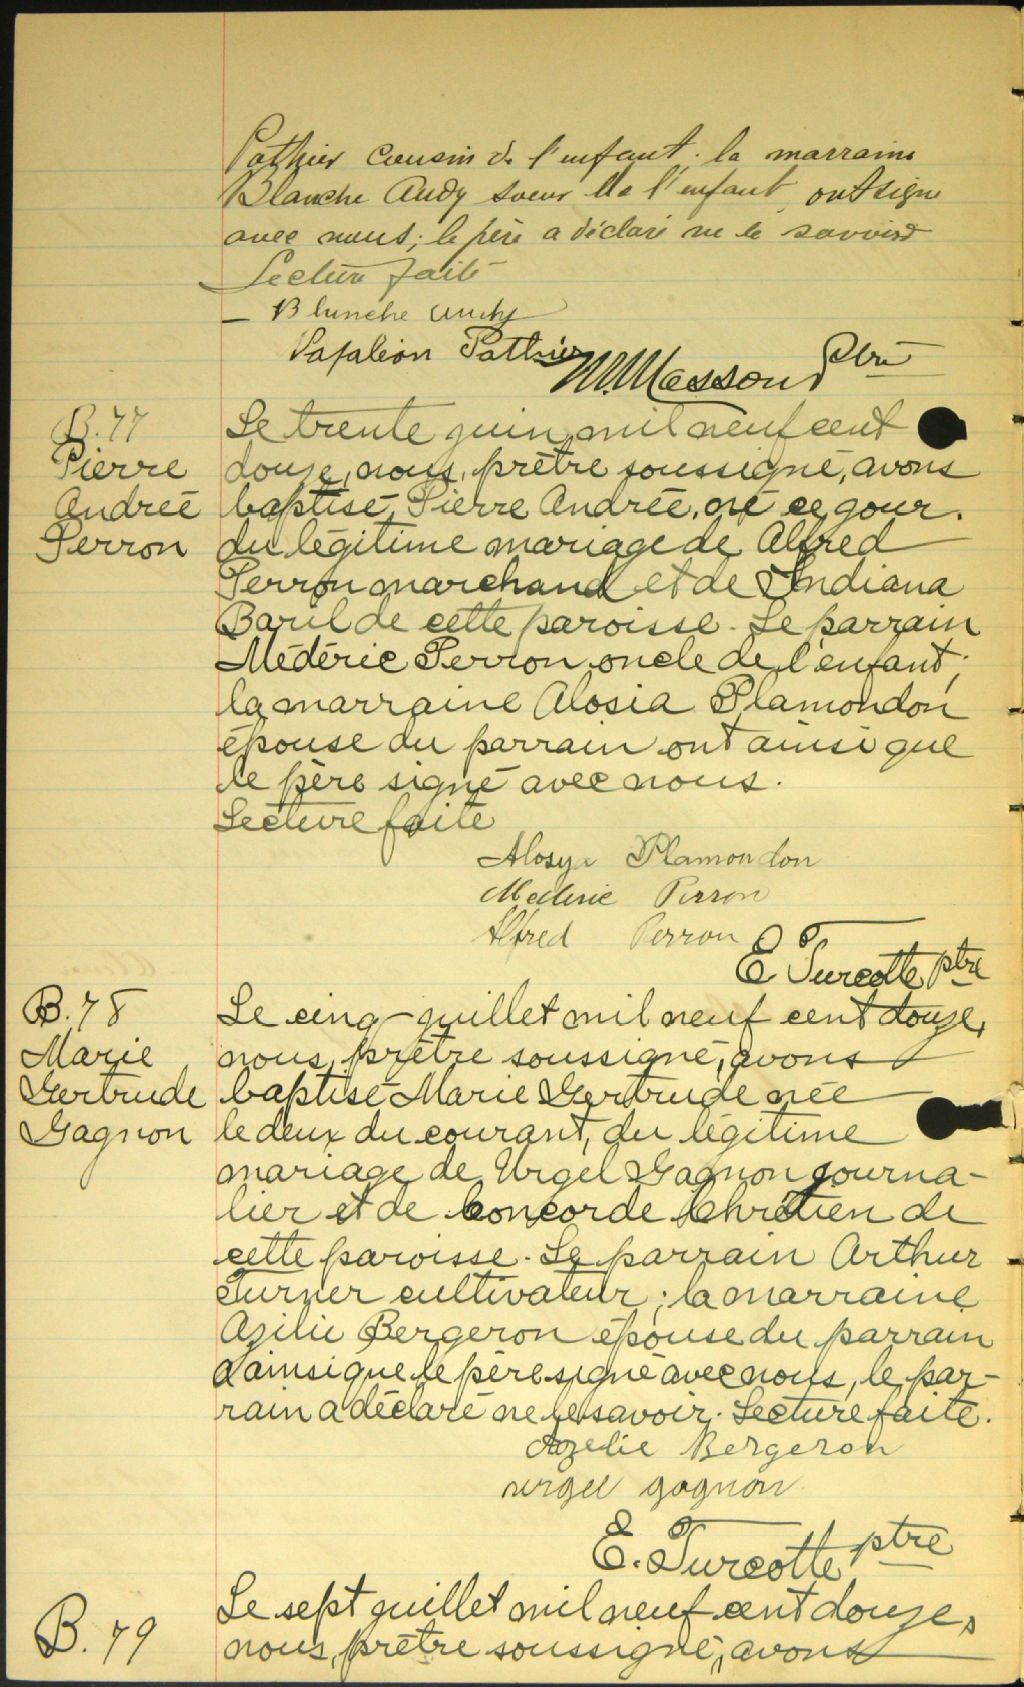 Pathier cousin de l'enfant. la marraine
Blanche Audy soeur de l'enfant, ont signe
avec nous; le père a déclaré ne le savoir
Lecture faite
Blanche Audy
Pathier Ptre
B. 77
Pierre
Andreé
Perron
Le trente juin, mil neuf cent
douze, nous, prêtre soussigné, avons
baptisé, Pierre Andreé, né ce jour.
du légitime mariage de Alfred
Perron marchand et de Indiana
Baril de cette paroisse. Le parrain
Médéric Perron oncle de l'enfant;
la marraine Alosia Plamondon
épouse du parrain ont ainsi que
le père signé avec nous.
Lecture faite
Alosya Plamondon
Mederic Perron
Alfred Perron
E Turcotte ptre
B. 78
Marie
Gertrude
Gagnon
Le cinq juillet mil neuf cent douze,
nous, prêtre soussigné, avons
baptisé Marie Gertrude née
le deux du courant, du légitime
mariage de Urgel Gagnon journa-
lier et de Concorde Chrétien de
cette paroisse. Le parrain Arthur
Turner cultivateur; la marraine
Azilie Bergeron épouse du parrain
a ainsi que le père signé avec nous, le par-
rain a déclaré ne le savoir. Lecture faite.
Azelie Bergeron
urgel gagnon
E. Turcotte ptre
B. 79
Le sept juillet mil neuf cent douze,
nous, prêtre soussigné, avons